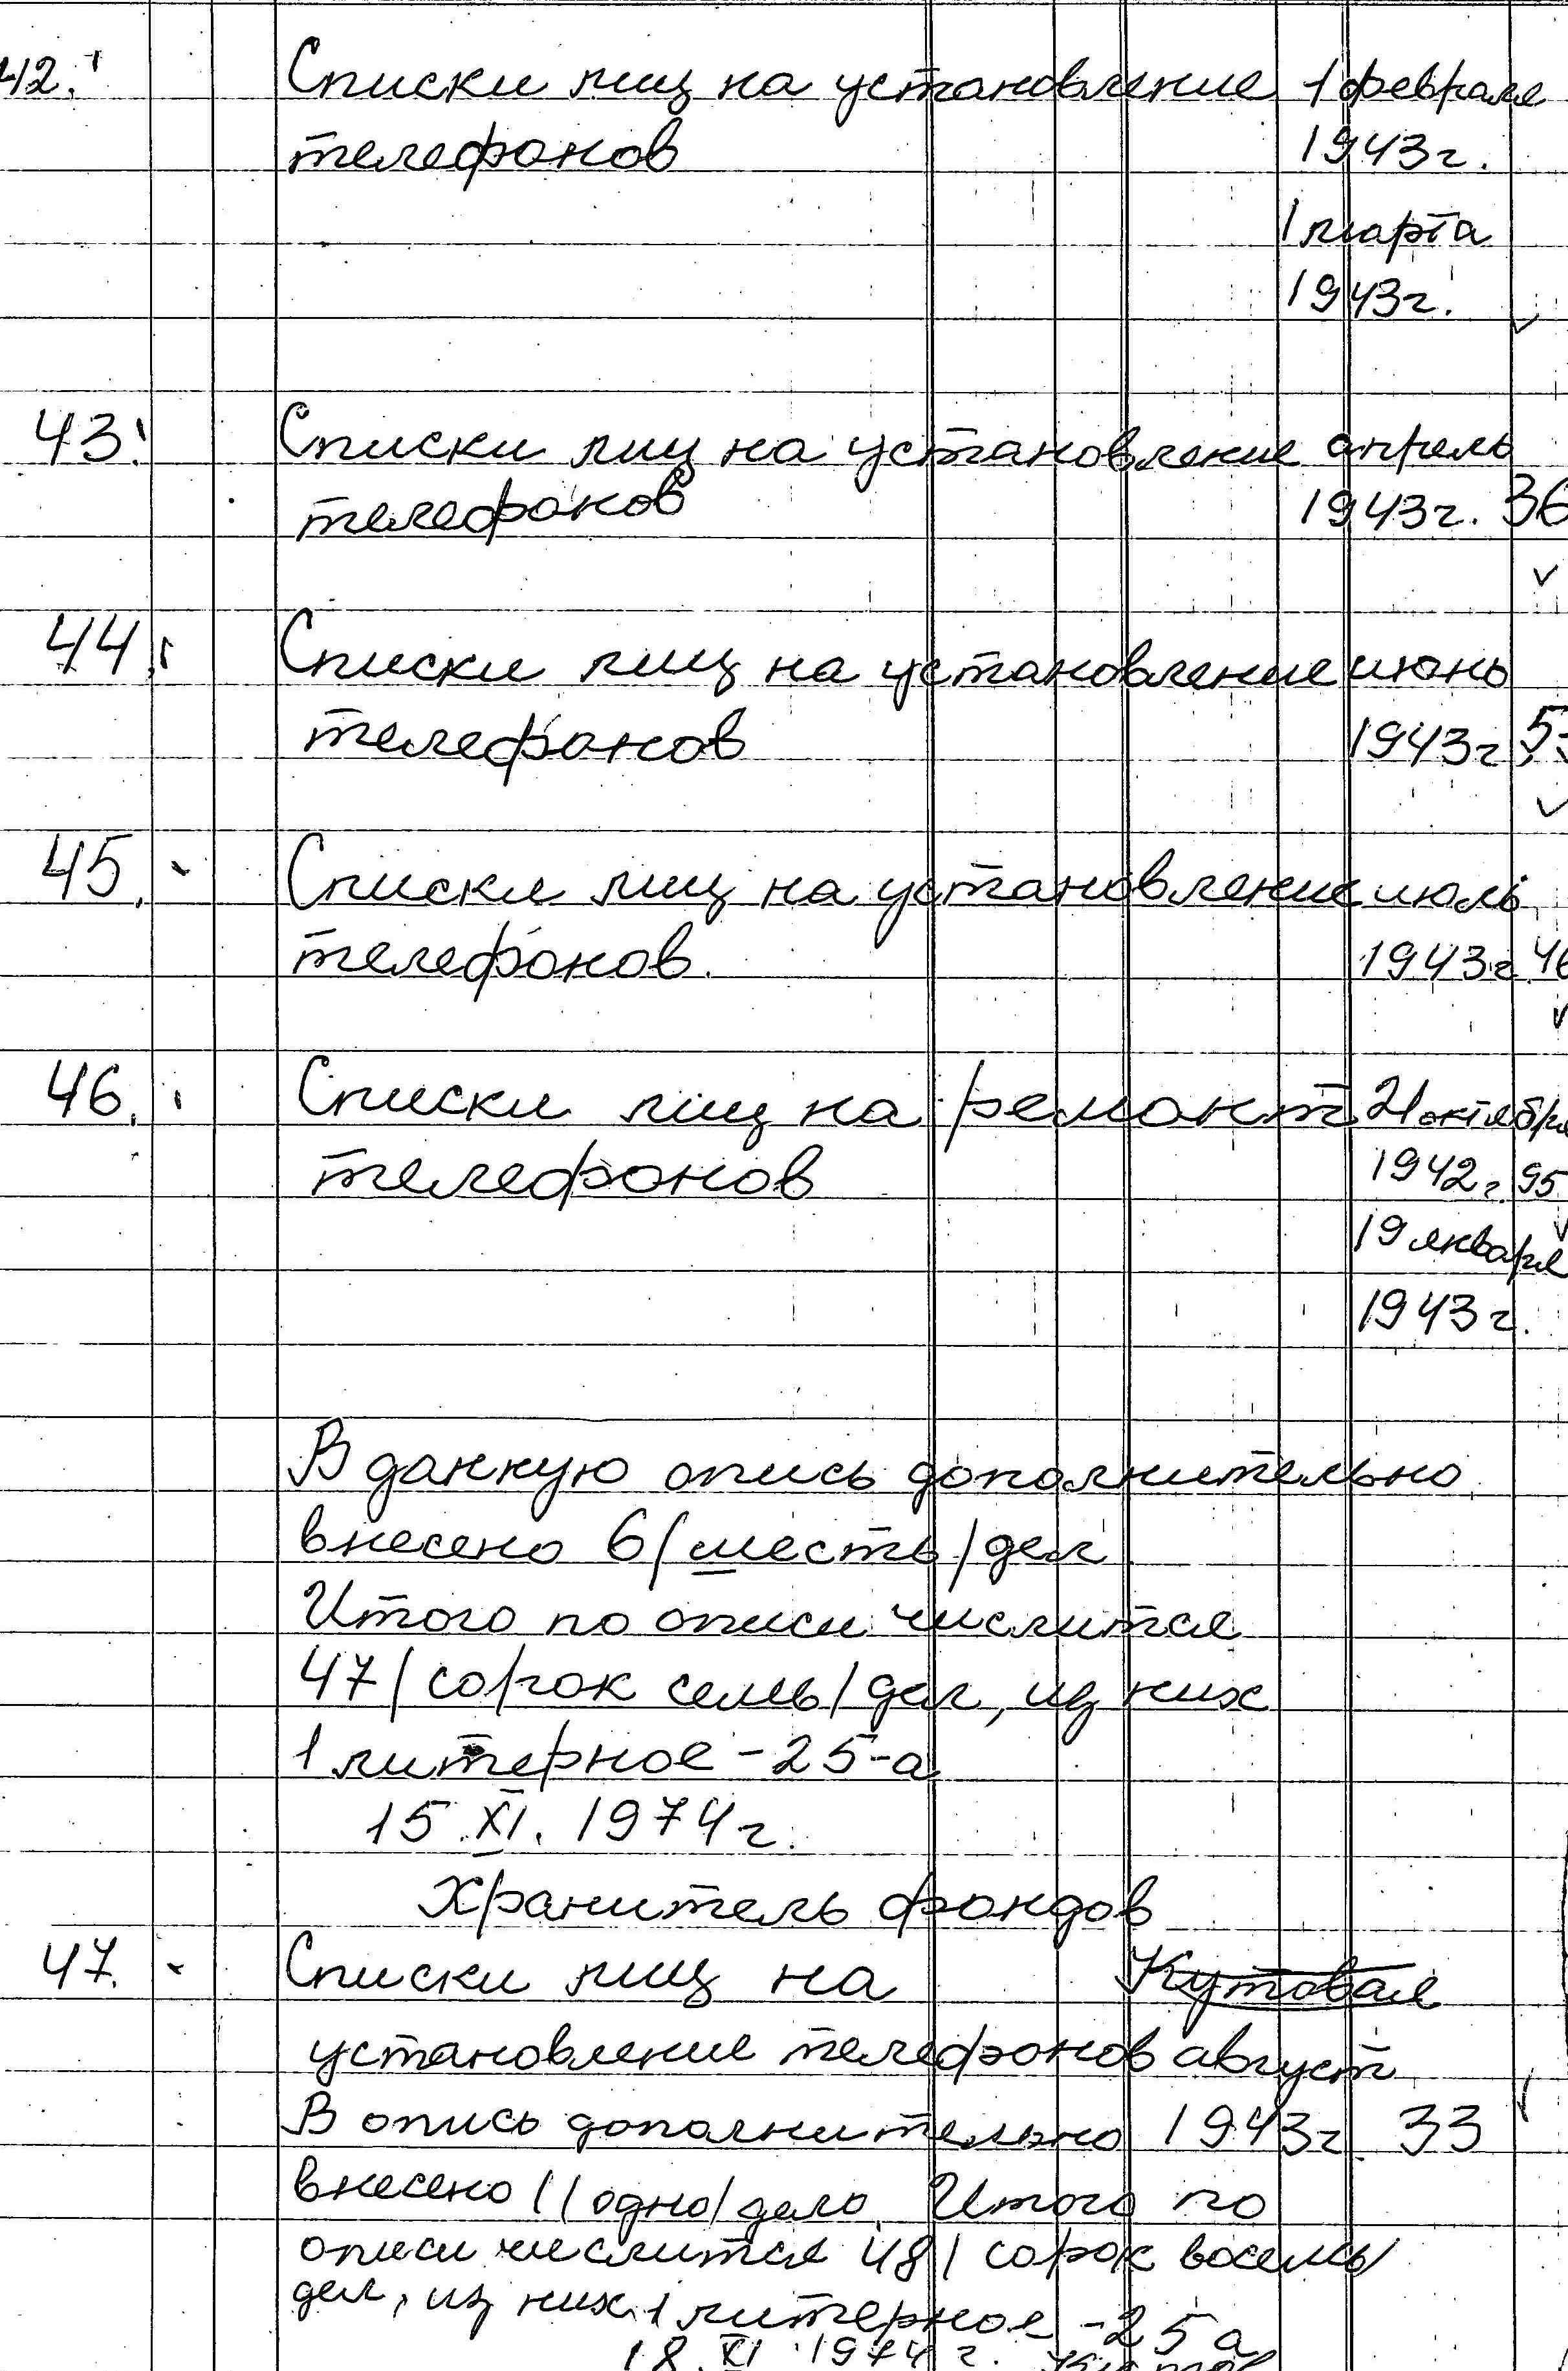 42. Списки лиц на установление 1 февраля
телефонов 1943г.
1 марта
1943г.
43. Списки лиц на установление апрель
телефонов 1943г. 36
44. Списки лиц на установление июнь
телефонов 1943г
45. Списки лиц на установление июль
телефонов. 1943г
46. Списки лиц на ремонт 21 октября
телефонов 1942г. 95
19 января
1943г.
В данную опись дополнительно
внесено 6/шесть/дел
Итого по описи числится
47/сорок семь/дел, из них
1 литерное - 25-а
15.XI.1974г.
Хранитель фондов
47. Списки лиц на Кутовая
установление телефонов август
В опись дополнительно 1943г. 33
внесено 1/одно/дело. Итого по
описи числится 48/сорок восемь/
дел, из них 1 литерное - 25а
18.XI.1974г.